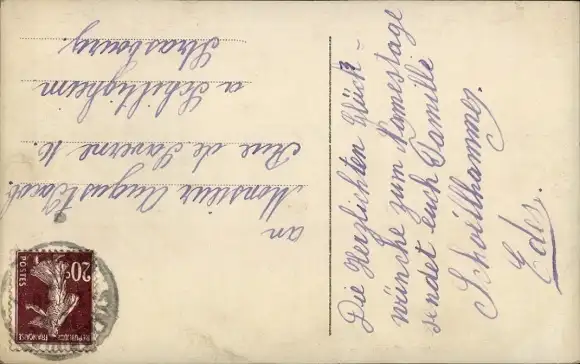 Die Herzlichten Glück-
wünche zum Namestage
sendet euch Familie
Schoillhammer
Edes.
an
Monsieur Auguste Jacob
Rue de Saverne 16
a Schiltigheim
Strasbourg
20c
POSTES
REPUBLIQUE
FRANÇAISE